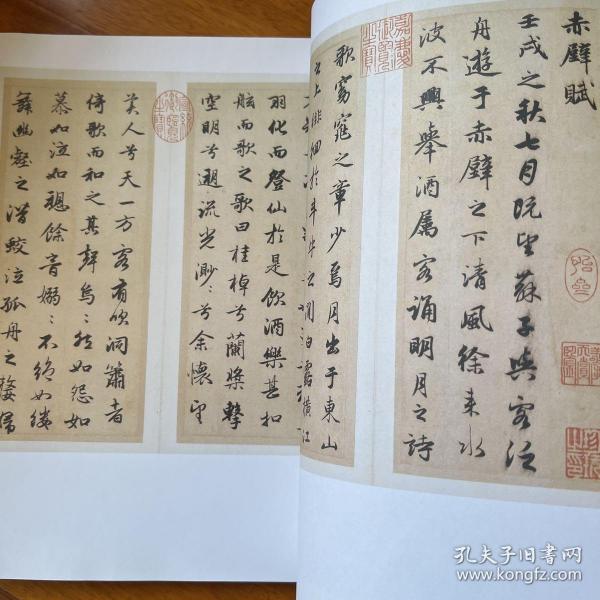 赤壁賦
壬戌之秋七月既望蘇子與客泛
舟遊于赤壁之下清風徐来水
波不興舉酒属客誦明月之詩
歌窈窕之章少焉月出于東山
之上徘徊於斗牛之間白露橫江
羽化而登仙於是飲酒樂甚扣
舷而歌之歌曰桂棹兮蘭槳擊
空明兮遡流光渺々兮余懷望
美人兮天一方客有吹洞簫者
倚歌而和之其聲烏々然如怨如
慕如泣如愬餘音嫋々不絕如縷
舞幽壑之潛蛟泣孤舟之嫠婦
嘉慶御覽之寶
孔夫子旧书网
www.kongfz.com